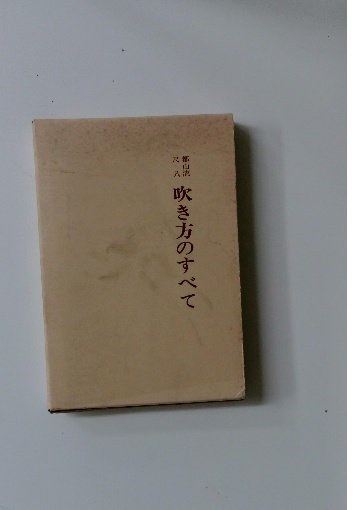 都山流
尺八
吹き方のすべて